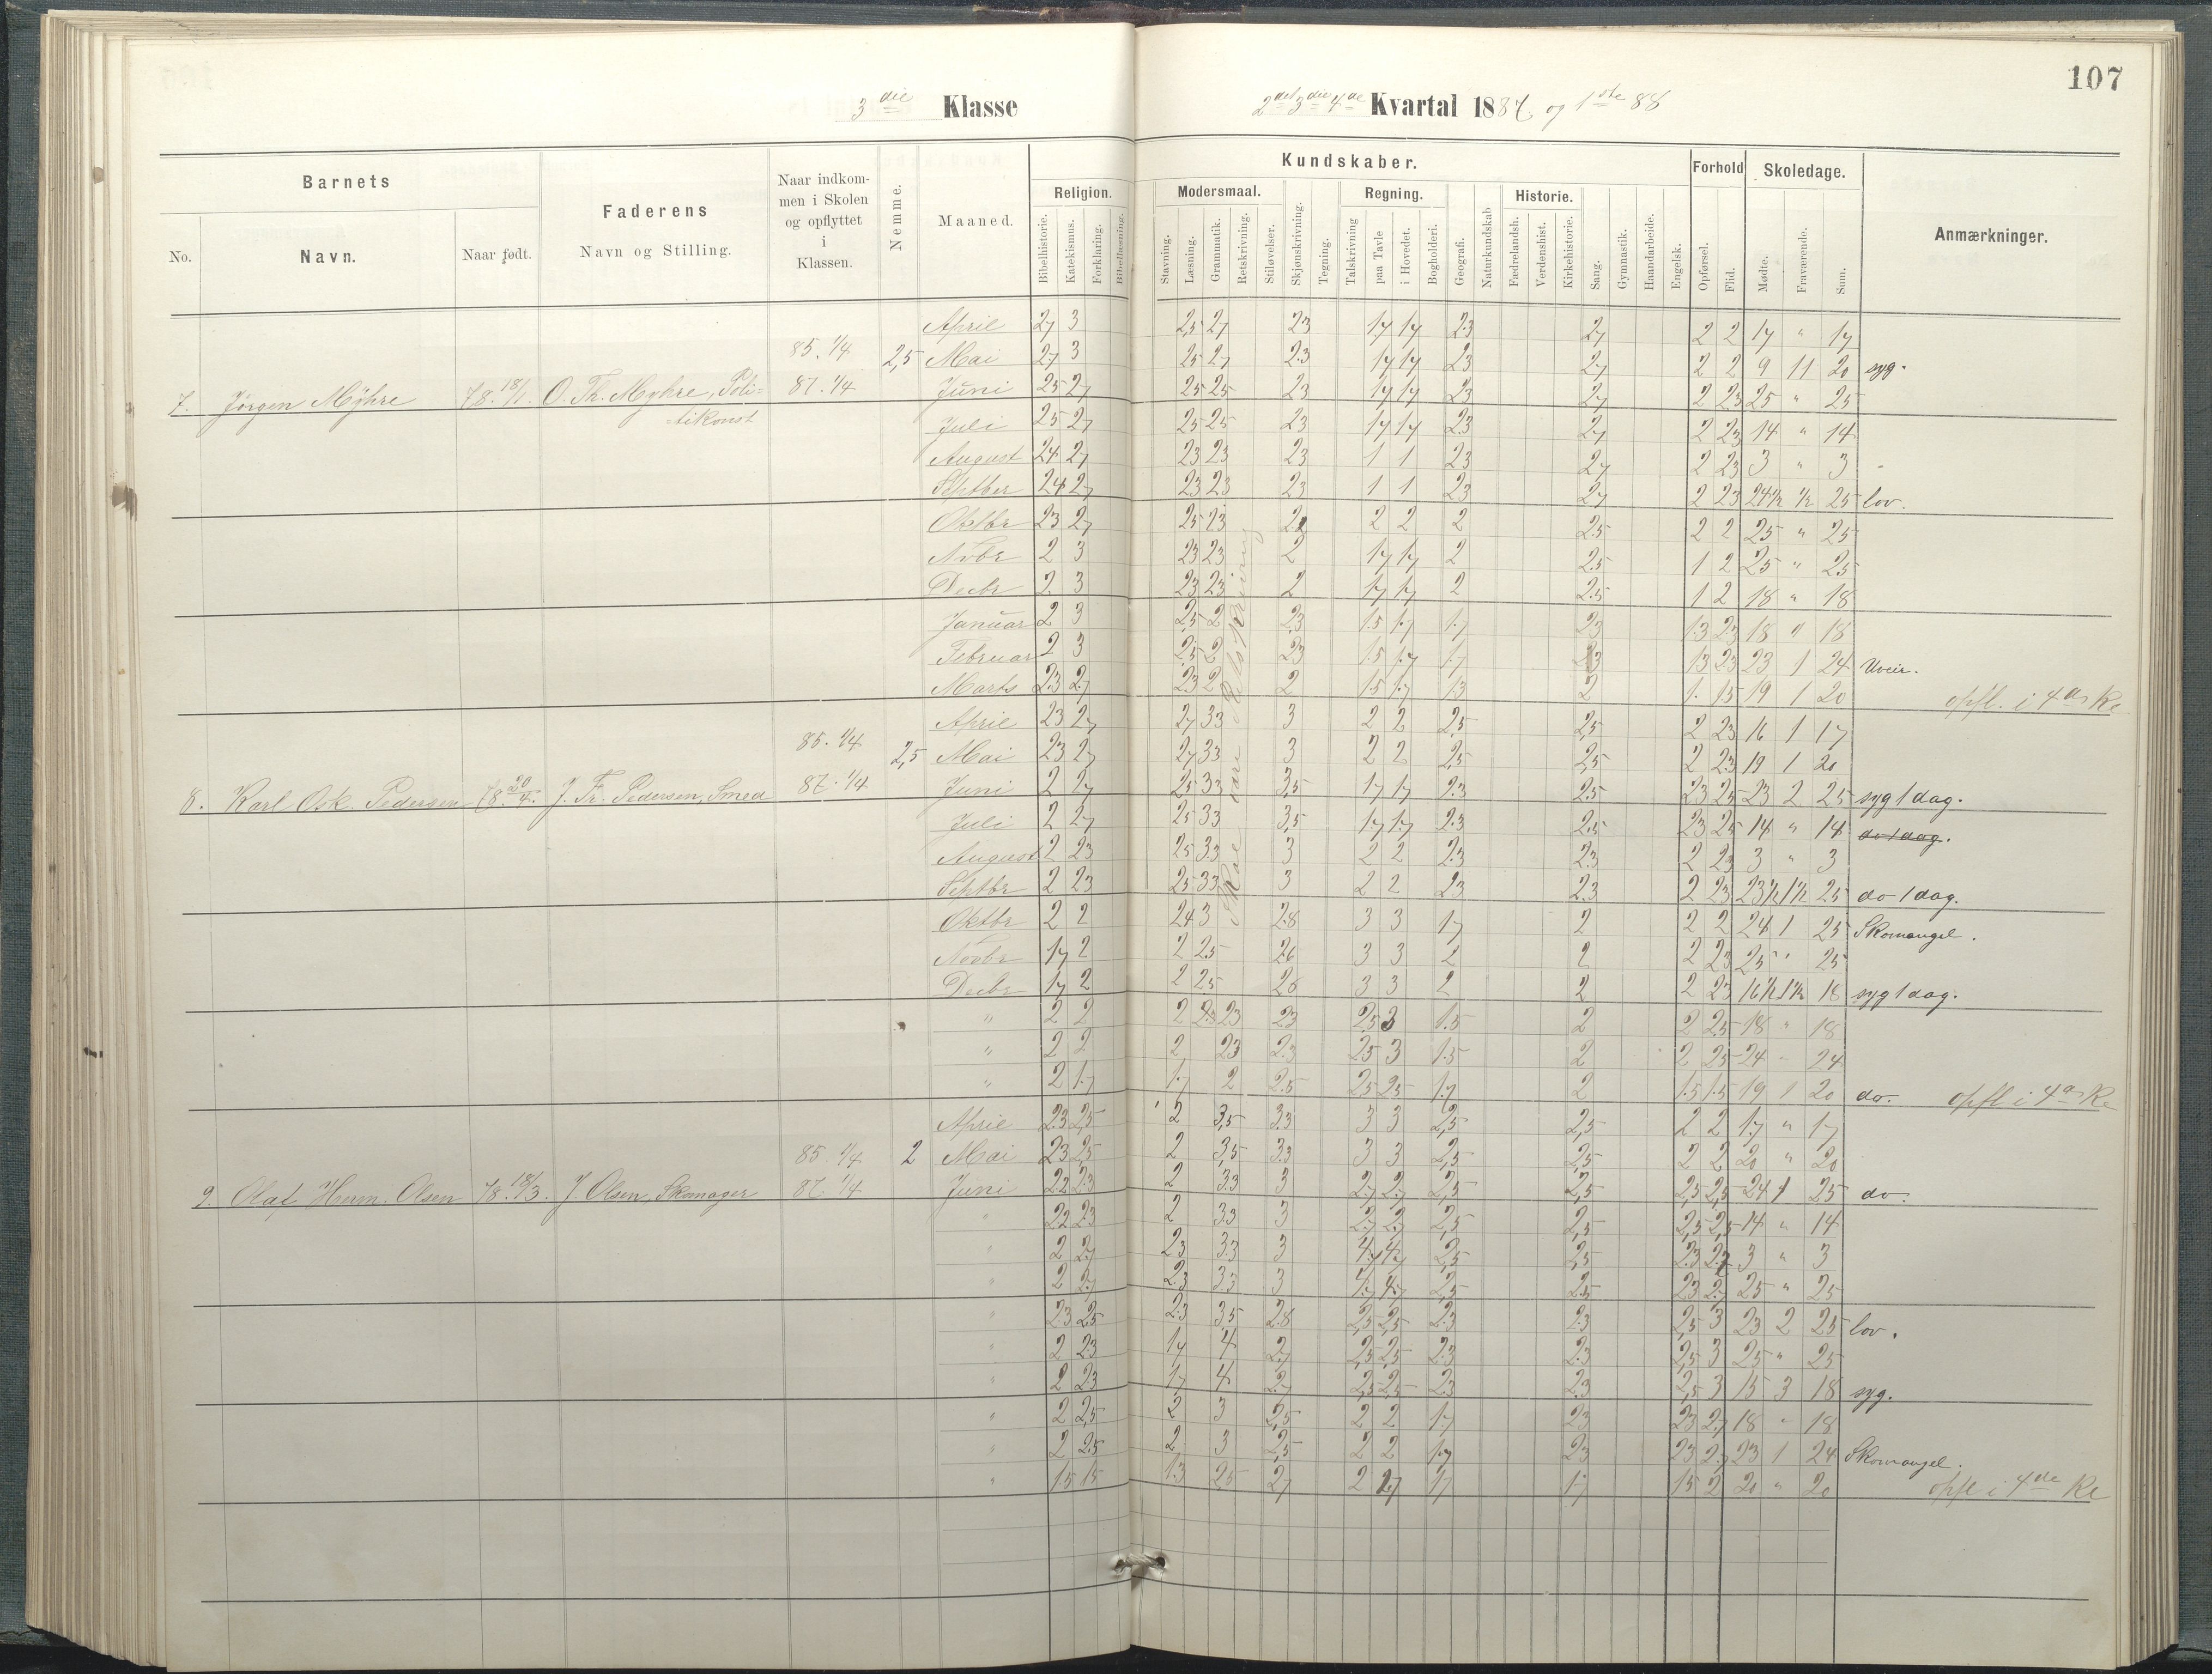 107
3die Klasse
2det 3die 4de Kvartal 1887 og 1ste 88
Barnets
No.
Navn.
Naar født.
Faderens
Navn og Stilling.
Naar indkom-
men i Skolen
og opflyttet
i
Klassen.
Nemme.
Maaned.
Kundskaber.
Religion.
Bibelhistorie.
Katekismus.
Forklaring.
Bibellæsning.
Modersmaal.
Stavning.
Læsning.
Grammatik.
Retskrivning.
Stiløvelser.
Skjønskrivning.
Tegning.
Regning.
Talskrivning
paa Tavle
i Hovedet.
Bogholderi.
Geografi.
Naturkundskab
Historie.
Fædrelandsh.
Verdenshist.
Kirkehistorie.
Sang.
Gymnastik.
Haandarbeide.
Engelsk.
Forhold
Opførsel.
Flid.
Skoledage.
Mødte.
Fraværende.
Sum.
Anmærkninger.
April 27 3 2,5 27 23 17 17 23 27 2 2 17 " 17
85. 1/4 2,5 Mai 27 3 25 27 23 17 17 23 27 2 2 9 11 20 syg.
7. Jörgen Myhre 78. 18/1. O. Th. Myhre, Poli- 87. 1/4 Juni 25 27 25 25 23 17 17 23 27 2 23 25 " 25
tikonst Juli 25 27 25 25 23 17 17 23 27 2 23 14 " 14
August 24 27 23 23 23 1 1 23 27 2 23 3 " 3
Septber 24 27 23 23 23 1 1 23 27 2 23 24 1/2 1/2 25 lov.
Oktbr 23 27 25 23 2 2 2 25 2 2 25 " 25
Nvbr 2 3 23 23 2 17 17 2 25 1 2 25 " 25
Decbr 2 3 23 23 2 17 17 2 25 1 2 18 " 18
Januar 2 3 2,5 2 23 15 17 17 23 13 23 18 " 18
Februar 2 3 2,5 2 23 15 17 17 23 13 23 23 1 24 Uveir.
Marts 23 27 23 2 2 15 17 13 2 1. 15 19 1 20 opfl. i 4de Kl
Skal være Retskrivning
April 23 27 27 33 3 2 2 2,5 2,5 2 23 16 1 17
85. 1/4 2,5 Mai 23 27 27 33 3 2 2 2,5 2,5 2 23 19 1 20
8. Karl Osk. Pedersen 78. 20/4. J. Fr. Pedersen, Smed 87. 1/4 Juni 2 27 25 33 3,5 17 17 23 25 23 25 23 2 25 syg 1 dag.
Juli 2 27 25 33 3,5 17 17 23 25 23 25 14 " 14 do 1 dag.
August 2 23 25 33 3 2 2 23 23 2 23 3 " 3
Septbr 2 23 25 33 3 2 2 23 23 2 23 23 1/2 1 1/2 25 do 1 dag.
Oktbr 2 2 24 3 28 3 3 17 2 2 2 24 1 25 Skomangel.
Novbr 17 2 2 25 26 3 3 2 2 2 23 25 " 25
Decbr 17 2 2 25 26 3 3 2 2 2 23 16 1/2 1 1/2 18 syg 1 dag.
" 2 2 2 23 23 23 25 3 15 2 2 25 18 " 18
" 2 2 2 23 23 25 3 15 2 2 25 24 " 24
" 2 17 17 2 25 25 25 17 2 15 15 19 1 20 do. opfl i 4de Kl
April 23 25 2 3,5 33 3 3 2,5 2,5 2 2 17 " 17
85. 1/4 2 Mai 23 25 2 3,5 33 3 3 2,5 2,5 2 2 20 " 20
9. Olaf Herm. Olsen 78. 18/3. J. Olsen, Skomager 87. 1/4 Juni 22 23 2 33 3 27 27 2,5 2,5 2,5 2,5 24 1 25 do.
" 22 23 2 33 3 27 27 2,5 2,5 2,5 2,5 14 " 14
" 2 27 23 33 3 47 47 2,5 2,5 23 27 3 " 3
" 2 27 23 33 3 47 47 2,5 25 23 27 25 " 25
" 23 25 23 35 28 2,5 2,5 23 23 2,5 3 23 2 25 lov.
" 2 23 17 4 27 2,5 25 23 23 2,5 3 25 " 25
" 2 23 17 4 27 25 25 23 23 2,5 3 15 3 18 syg.
" 2 25 2 3 2,5 2 2 17 23 23 27 18 " 18
" 2 25 2 3 2,5 2 2 17 23 23 27 23 1 24 Skomangel.
" 15 15 13 25 27 2 27 17 17 15 2 20 " 20 opfl i 4de Kl